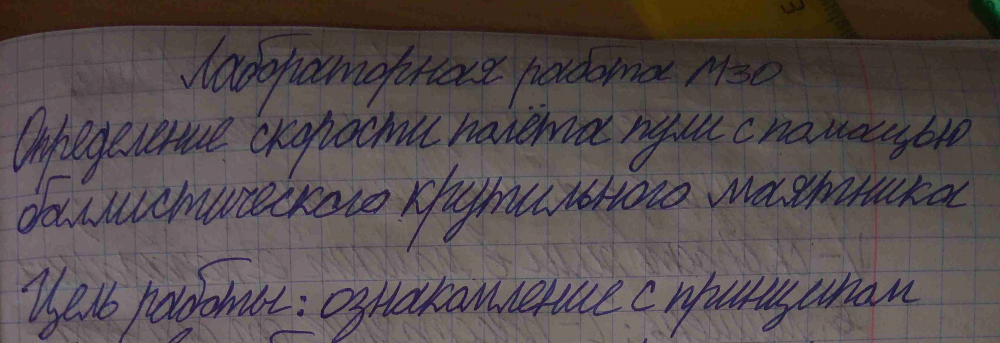 Лабораторная работа М30
Определение скорости полёта пули с помощью
баллистического крутильного маятника
Цель работы: ознакомление с принципом